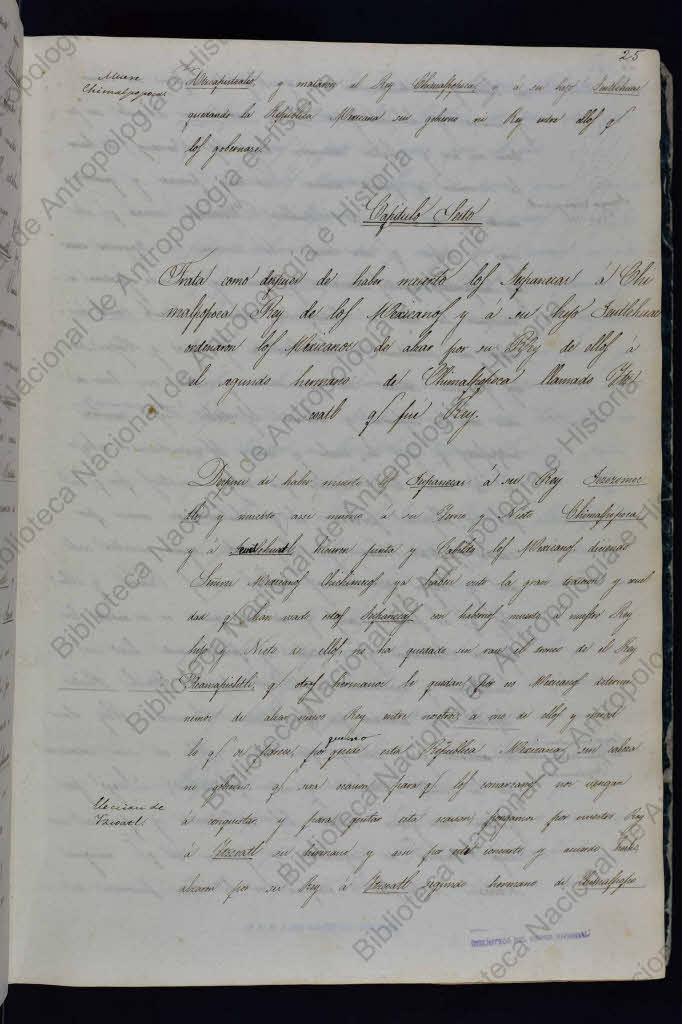 25
Muere
Chimalpopoca
Atzcaputzalco, y mataron al Rey Chimalpopoca, y á su hijo Teuctlehuac
quedando la República Mexicana sin gobierno ni Rey entre ellos q̃
los gobernase.
Capítulo Sesto
Trata como despues de haber muerto los Tepanecas á Chi
malpopoca Rey de los Mexicanos y á su hijo Teuctlehuac
ordenaron los Mexicanos de alzar por su Rey de ellos á
el segundo hermano de Chimalpopoca llamado Ytz
coatl q̃ fué Rey.
Despues de haber muerto los Tepanecas á su Rey Tezozomoc
tli y muerto asi mismo á su Yerno y Nieto Chimalpopoca,
y á Teuctlehuatl hicieron junta y Cabildo los Mexicanos, diciendo
Señores Mexicanos Chichimecas ya habeis visto la gran traicion y cruel
dad q̃ han usado estos Tepanecas con habernos muerto á nuestro Rey
hijo y Nieto de ellos, no ha quedado en vano el tronco de el Rey
q̃ otros hermanos le quedan, por eso Mexicanos determi
nemos de alzar nuevo Rey entre nosotros á uno de ellos y mirad
lo q̃ os parece, por que no quede esta República Mexicana sin cabeza
ni gobierno, q̃ será ocasion para q̃ los comarcanos nos vengan
Eleccion de
Yzcoatl.
á conquistar, y para quitar esta ocasion, pongamos por nuestro Rey
á Yzcoatl su hermano y asi por este concierto y acuerdo
alzaron por su Rey á Yzcoatl segundo hermano de Chimalpopo
Biblioteca Nacional de Antropología e Historia